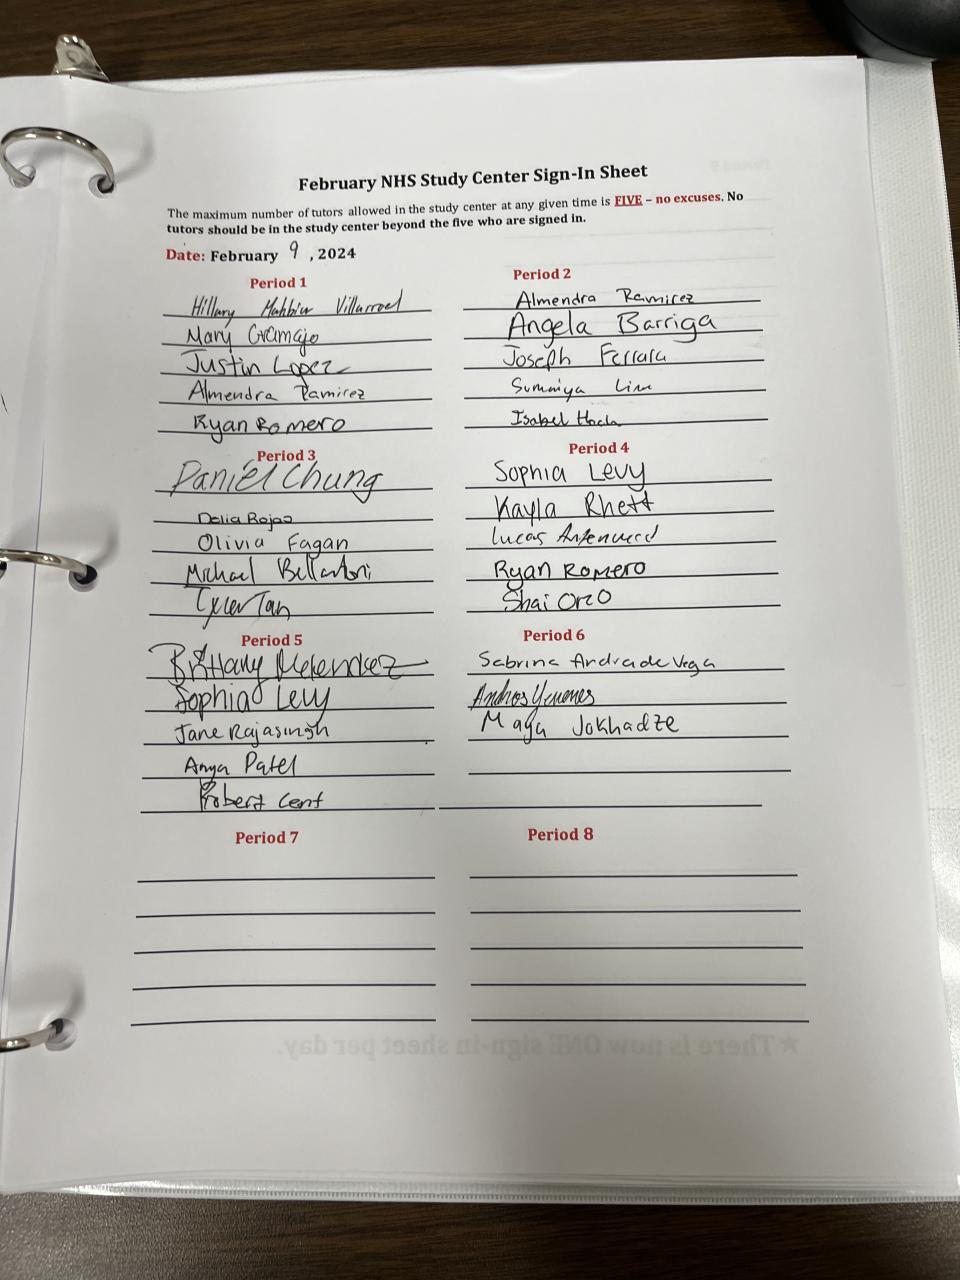 February NHS Study Center Sign-In Sheet
The maximum number of tutors allowed in the study center at any given time is FIVE – no excuses. No
tutors should be in the study center beyond the five who are signed in.
Date: February 9, 2024
Period 1
Hillary Villarroel
Mary Gramajo
Justin Lopez
Almendra Ramirez
Ryan Romero
Period 2
Almendra Ramirez
Angela Barriga
Joseph Ferrara
Sumaiya
Isabel
Period 3
Daniel Chung
Delia Rojas
Olivia Fagan
Michael Bellantoni
Tyler Tan
Period 4
Sophia Levy
Kayla Rhett
Lucas
Ryan Romero
Shai Oro
Period 5
Brittany Melendez
Sophia Levy
Jane Rajasingh
Anya Patel
Robert Cent
Period 6
Sabrina Andrade Vega
Maya Jokhadze
Period 7
Period 8
★There is now ONE sign-in sheet per day.